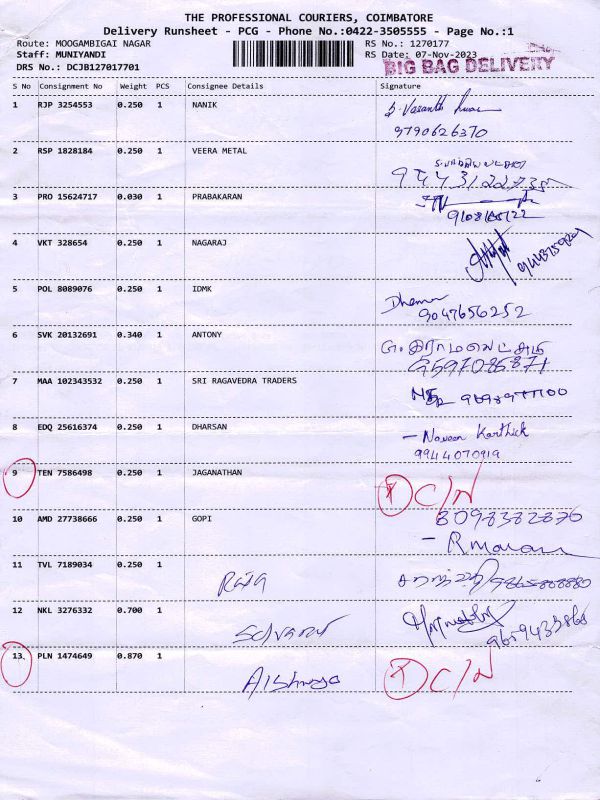 THE PROFESSIONAL COURIERS, COIMBATORE
Delivery Runsheet - PCG - Phone No.:0422-3505555 - Page No.:1
Route: MOOGAMBIGAI NAGAR RS No.: 1270177
Staff: MUNIYANDI RS Date: 07-Nov-2023
DRS No.: DCJB127017701 BIG BAG DELIVERY
S No Consignment No Weight PCS Consignee Details Signature
1 RJP 3254553 0.250 1 NANIK S. Vasanth Kumar
9790626370
2 RSP 1828184 0.250 1 VEERA METAL
3 PRO 15624717 0.030 1 PRABAKARAN
4 VKT 328654 0.250 1 NAGARAJ
5 POL 8089076 0.250 1 IDMK
9047656252
6 SVK 20132691 0.340 1 ANTONY
7 MAA 102343532 0.250 1 SRI RAGAVEDRA TRADERS
8 EDQ 25616374 0.250 1 DHARSAN - Naveen Karthick
9944070919
9 TEN 7586498 0.250 1 JAGANATHAN C/N
10 AMD 27738666 0.250 1 GOPI 8098382876
11 TVL 7189034 0.250 1 Raja
12 NKL 3276332 0.700 1 Selvaraj
13 PLN 1474649 0.870 1 Aishwarya C/N